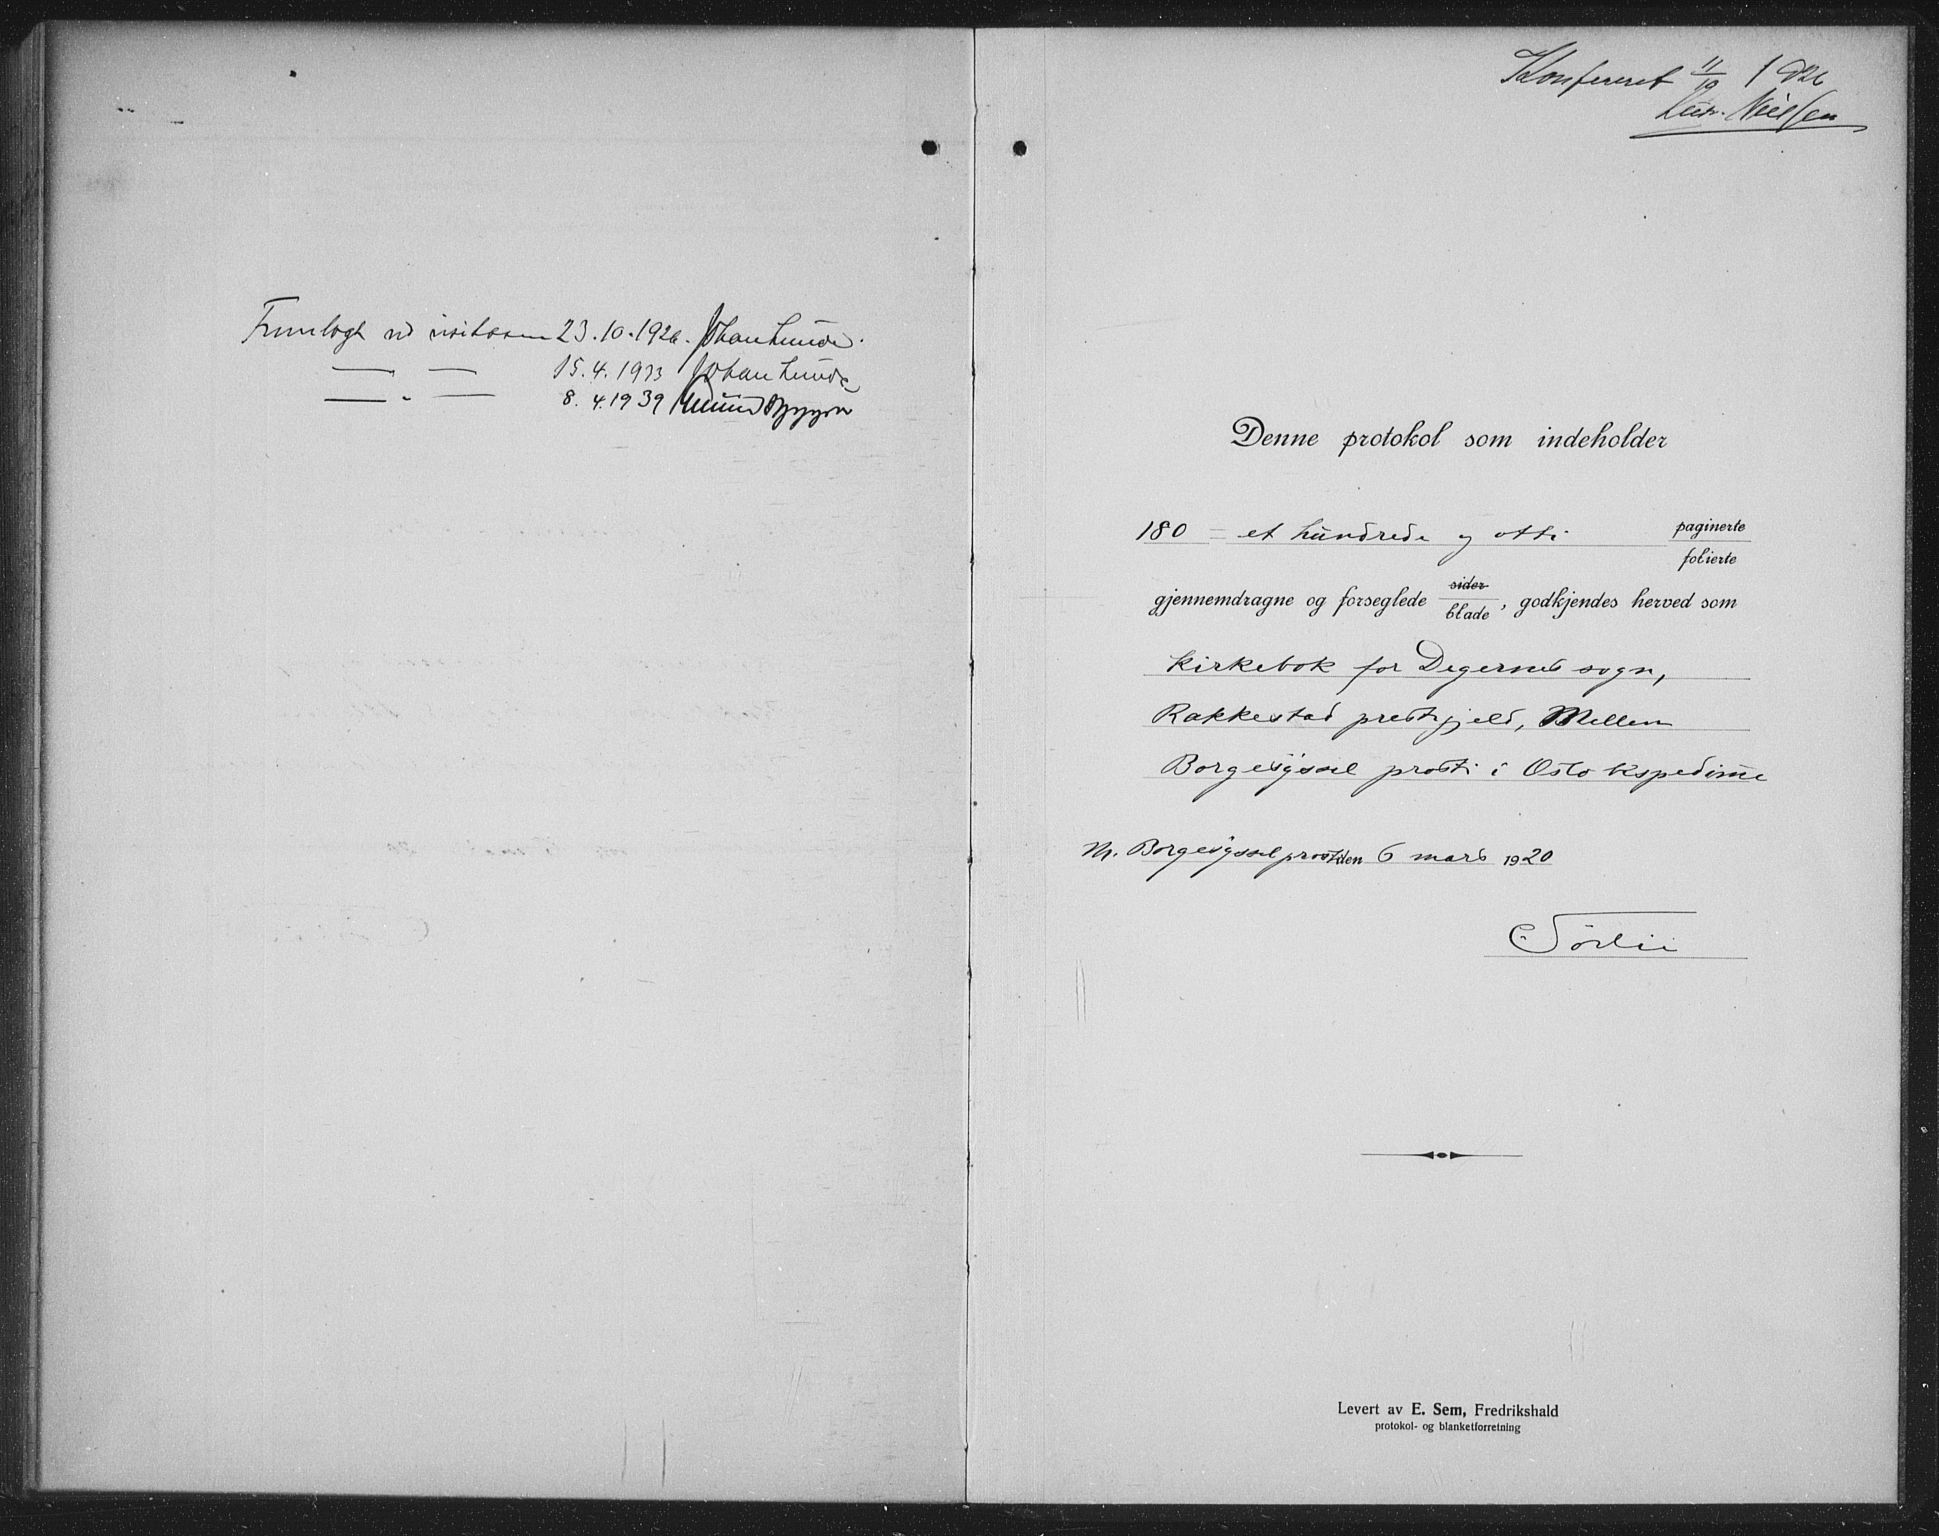 Fremlagt ved visitasen 23.10.1926. Johan Lunde.
— — 15.4.1933 Johan Lunde
— " — 8.4.1939
Konfereret 11/10 1926
Nielsen
Denne protokol som indeholder
180 = et hundrede og otti paginerte
folierte
gjennemdragne og forseglede sider
blade, godkjendes herved som
kirkebok for Degernes sogn,
Rakkestad prestegjeld, Mellem
Borgesyssel prosti i Oslo bispedømme
M. Borgesyssel prosti den 6 mars 1920
Levert av E. Sem, Fredrikshald
protokol- og blanketforretning